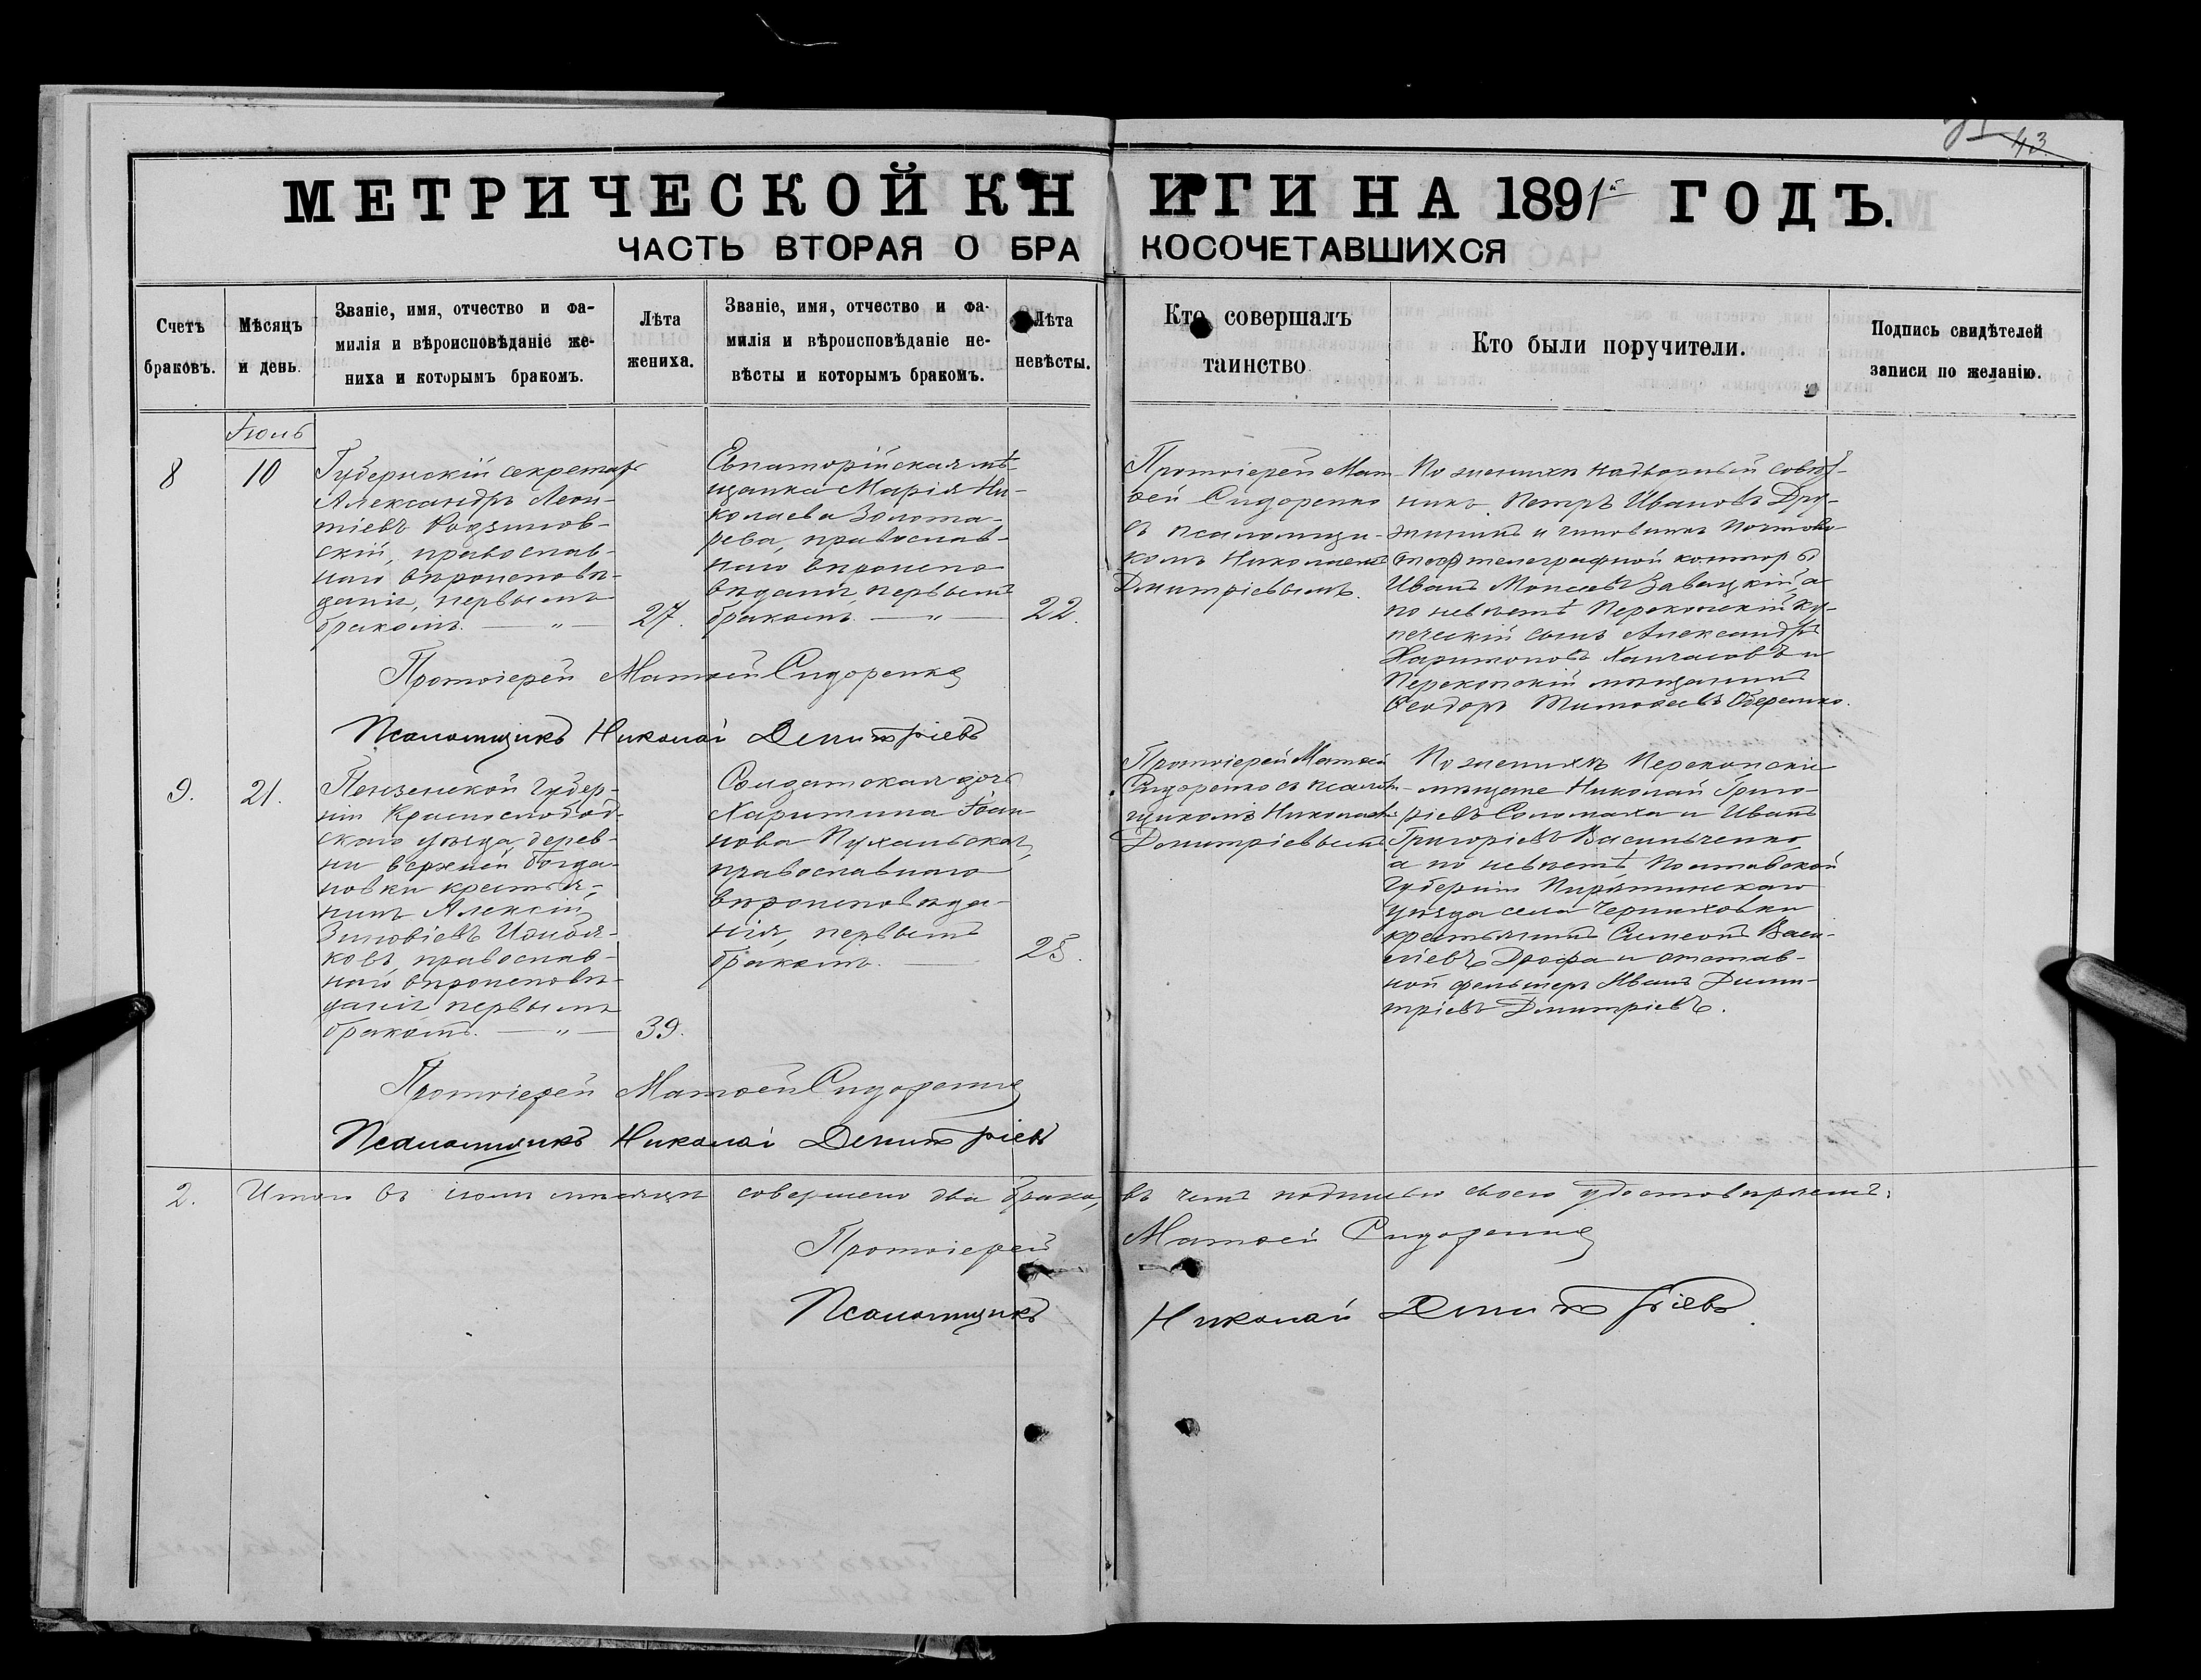 43
МЕТРИЧЕСКОЙ КНИГИ НА 1891й ГОДЪ.
ЧАСТЬ ВТОРАЯ О БРАКОСОЧЕТАВШИХСЯ
Счетъ
браковъ.
Мѣсяцъ
и день.
Званіе, имя, отчество и фа-
милія и вѣроисповѣданіе же-
ниха и которымъ бракомъ.
Лѣта
жениха.
Званіе, имя, отчество и фа-
милія и вѣроисповѣданіе не-
вѣсты и которымъ бракомъ.
Лѣта
невѣсты.
Кто совершалъ
таинство
Кто были поручители.
Подпись свидѣтелей
записи по желанію.
Іюль
8
10
Губернскій секретарь
Александръ Леон-
тіевъ
скій, православ-
наго вѣроисповѣ-
данія, первымъ
бракомъ. — „ —
27.
Евпаторійская мѣ-
щанка Марія Ни-
колаева Золота-
рева, православ-
наго вѣроиспо-
вѣданія, первымъ
бракомъ. — „ —
22.
Протоіерей Мат-
ѳей Сидоренко
съ псаломщи-
комъ Николаемъ
Дмитріевымъ.
По женихѣ надворный совѣт-
никъ Петръ Ивановъ Дру-
жининъ и чиновникъ Почтово-
телеграфной конторы
Иванъ Моисеевъ Завацкій, а
по невѣстѣ Перекопскій ку-
печескій сынъ Александръ
Харитоновъ и
Перекопскій мѣщанинъ
Ѳеодоръ Тимоѳеевъ
Протоіерей Матѳей Сидоренко
Псаломщикъ Николай Димитріевъ
9.
21.
Пензенской Губер-
ніи Краснослобод-
скаго уѣзда, дерев-
ни верхней Богда-
новки крестья-
нинъ Алексій
Зиновіевъ
ковъ, православ-
наго вѣроисповѣ-
данія первымъ
бракомъ. — „ —
39.
Солдатская дочь
Харитина Іоан-
нова Пухальская,
православнаго
вѣроисповѣда-
нія, первымъ
бракомъ. —
25.
Протоіерей Матѳей
Сидоренко съ псалом-
щикомъ Николаемъ
Дмитріевымъ.
По женихѣ Перекопскіе
мѣщане Николай Григо-
ріевъ Соломаха и Иванъ
Григоріевъ Васильченко,
а по невѣстѣ, Полтавской
Губерніи Пирятинскаго
уѣзда села Черняховки
крестьянинъ Симеонъ Васи-
ліевъ Дрофа и отстав-
ной фельшеръ Иванъ Дими-
тріевъ Дмитріевъ.
Протоіерей Матѳей Сидоренко
Псаломщикъ Николай Димитріевъ
2.
Итого въ іюлѣ мѣсяцѣ совершено два брака, въ чемъ подписью своею удостовѣряемъ:
Протоіерей Матѳей Сидоренко
Псаломщикъ Николай Димитріевъ.